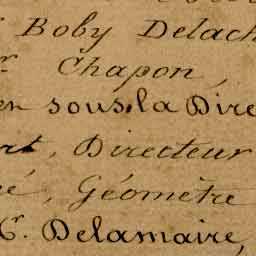 Boby Delach
r. Chapon,
en sous la Dire
rt, Directeur
é, Géomètre
Cr. Delamaire,